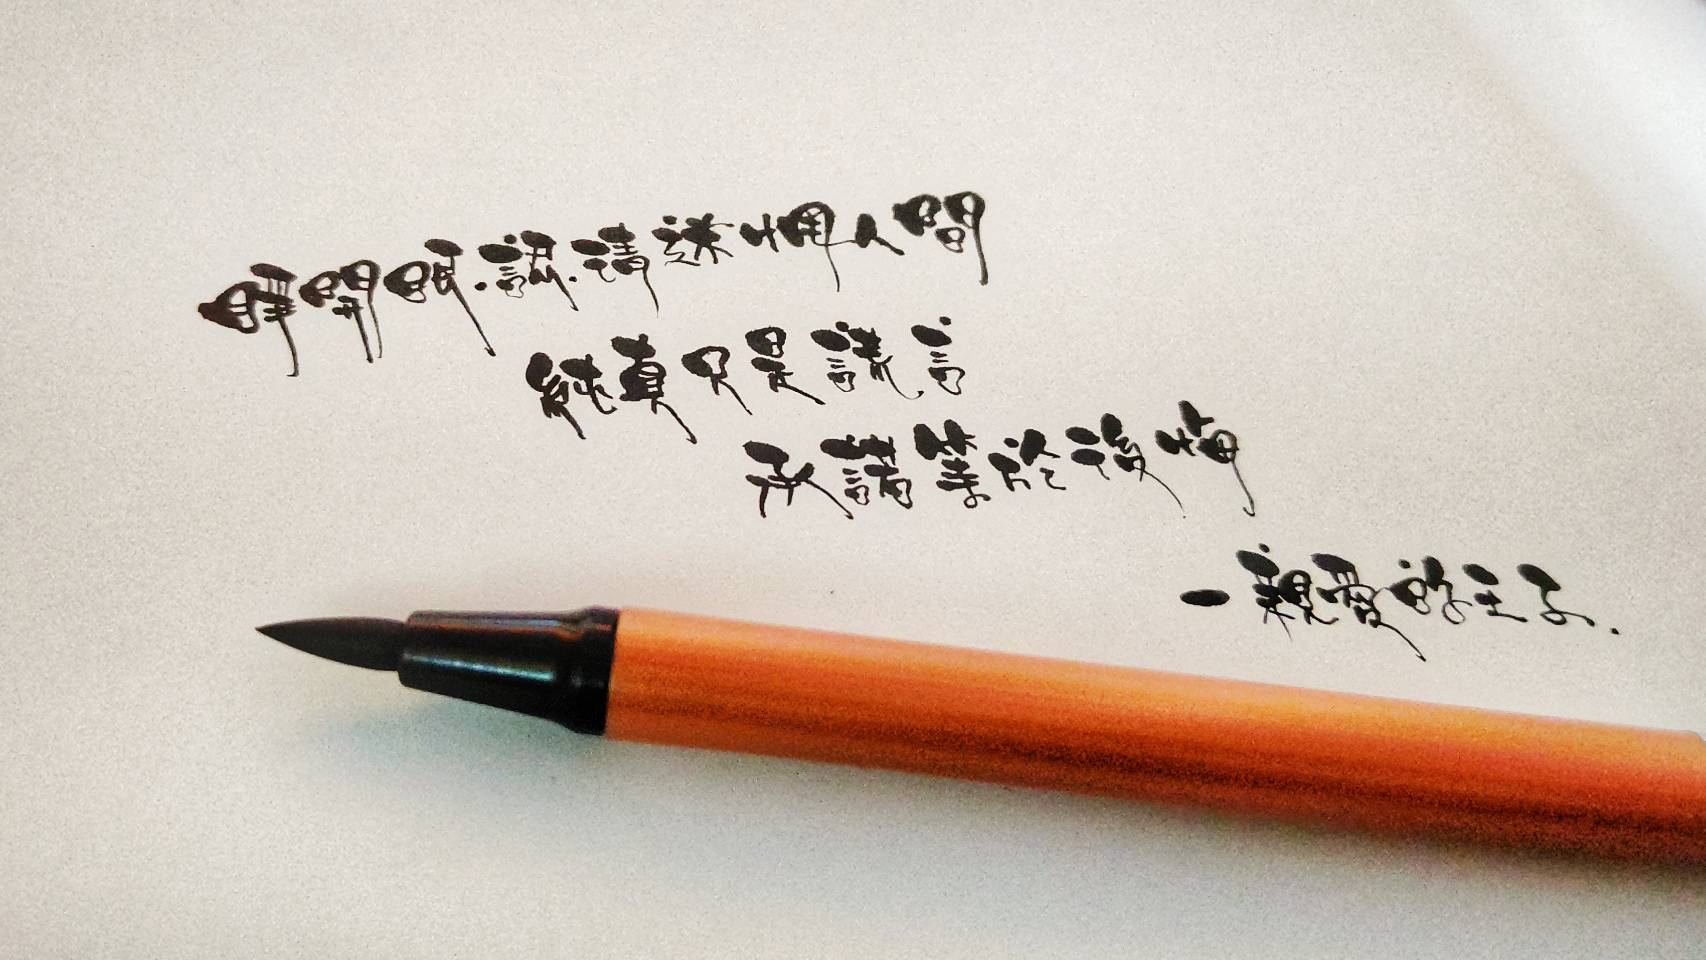 睜開眼.認.清迷惘人間
純真只是謊言
承諾築於後悔
一親愛的王子.